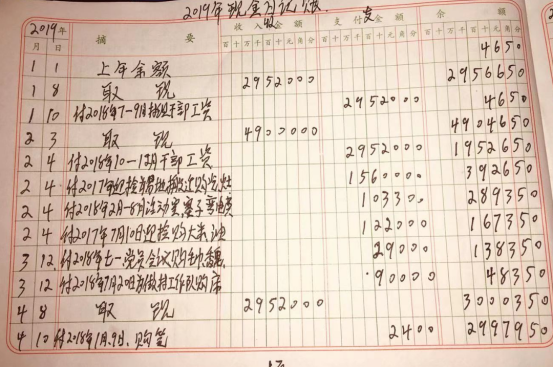 2019年现金日记账
2019年 摘要 收入金额 支付金额 余额
月 日 百十万千百十元角分 百十万千百十元角分 百十万千百十元角分
4650
1 1 上年余额
1 8 取现 2952000 2956650
1 10 付2018年7-9月 干部工资 2952000 4650
2 3 取现 4900000 4904650
2 4 付2018年10-12月干部工资 2952000 1952650
2 4 付2017年 搬迁购 灶 1560000 392650
2 4 付2018年2月-8月活动室 电费 103300 289350
2 4 付2017年7月10日迎检购大米、油 122000 167350
3 12 付2018年七一党员会议购毛巾 29000 138350
3 12 付2018年7月20日 工作队购席 90000 48350
4 8 取现 2952000 3000350
4 10 付2018年1月9日、购笔 2400 2997950